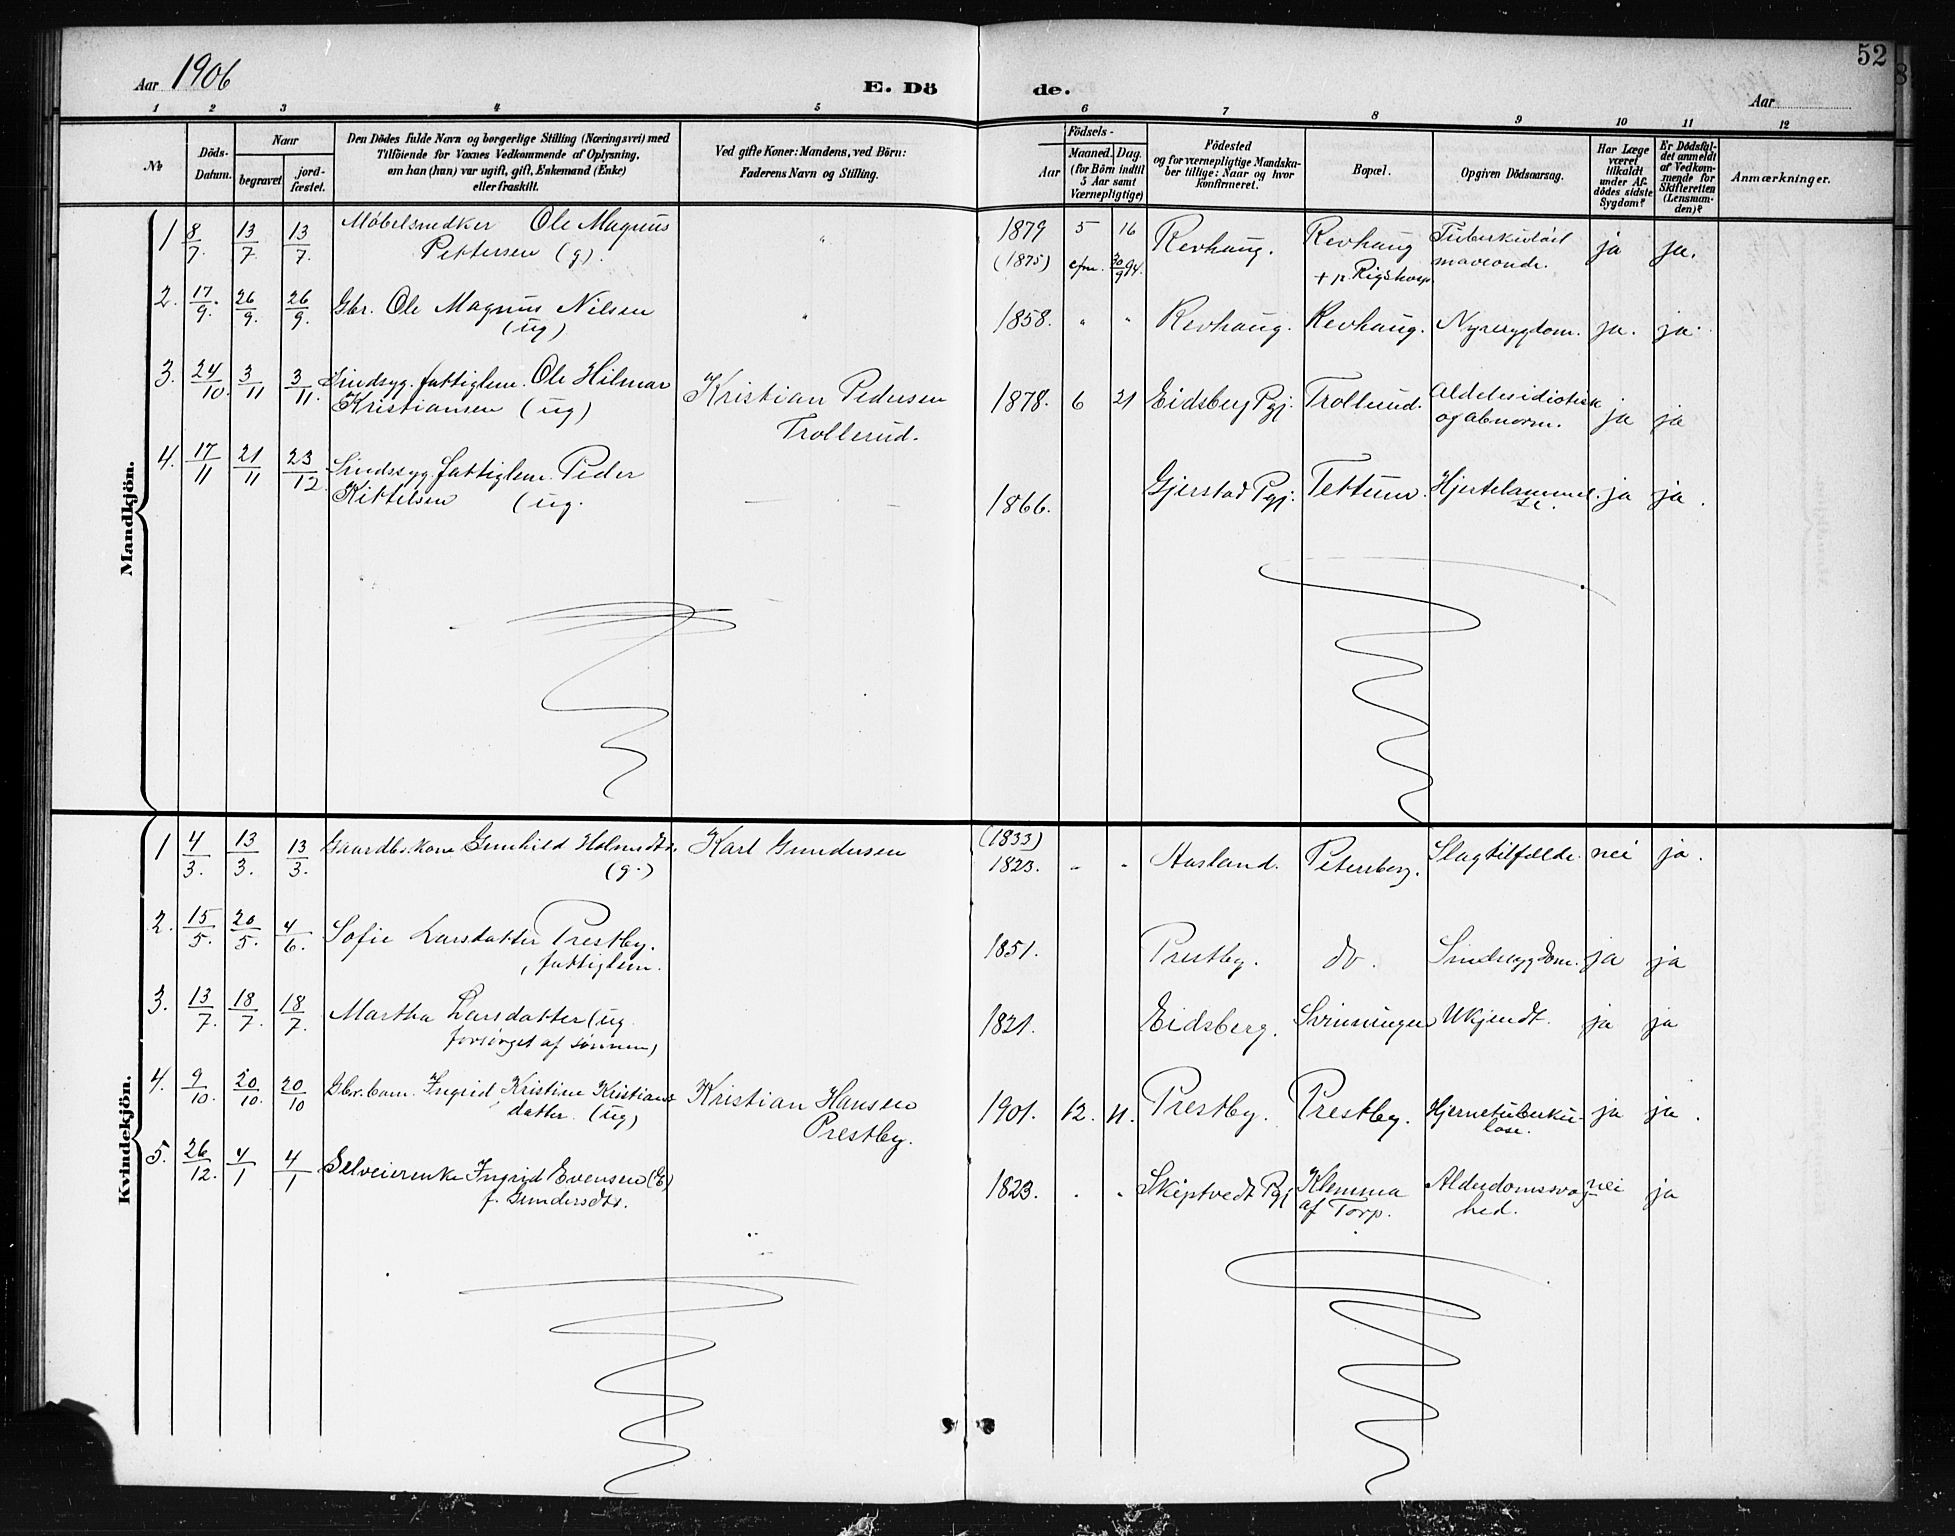 52
Aar 1906
E. Dö de.
Aar
1 2 3 4 5 6 7 8 9 10 11 12
No
Döds-Datum.
Naar
begravet
jord-fæstet.
Den Dödes fulde Navn og borgerlige Stilling (Næringsvei) med
Tilföiende for Voxnes Vedkommende af Oplysning,
om han (hun) var ugift, gift, Enkemand (Enke)
eller fraskilt.
Ved gifte Koner: Mandens, ved Börn:
Faderens Navn og Stilling.
Födsels-
Aar
Maaned.
Dag.
(for Börn indtil
5 Aar samt
Værnepligtige)
Födested
og for værnepligtige Mandska-
ber tillige: Naar og hvor
konfirmeret.
Bopæl.
Opgiven Dödsaarsag.
Har Læge
været
tilkaldt
under Af-
dödes sidste
Sygdom?
Er Dödsfal-
det anmeldt
af Vedkom-
mende for
Skifteretten
(Lensman-
den)?
Anmærkninger.
Mandkjön.
1 8/7. 13/7 13/7. Möbelsnedker Ole Magnus " 1879 5 16 Revhaug. Revhaug Tuberkuløst ja ja.
Pettersen (g). (1875) cfm. 30/9 94. + p. Rigshosp. maveonde.
2. 17/9. 26/9. 26/9. Gbr. Ole Magnus Nilsen " 1858. " " Revhaug. Revhaug. Nyresygdom. ja. ja.
(ug)
3. 24/10. 3/11 3/11. Sindsyg. fattiglem. Ole Hilmar Kristian Pedersen 1878. 6 21 Eidsberg Pgj. Trollerud. Aldeles idiotisk ja ja
Kristiansen (ug) Trollerud. og abnorm.
4. 17/11 21/11 23/12. Sindssyg. fattiglem. Peder 1866. Gjerstad Pgj. Tettum. Hjertelammel- ja ja.
Kittelsen (ug. se.
Kvindekjön.
1 4/3. 13/3. 13/3. Gaardbr.kone Gunhild Holmsdtr. Karl Gundersen (1833) 1823. " " Hasland. Petersberg. Slagtilfælde. nei ja.
(g.)
2. 15/5. 20/5. 4/6. Sofie Larsdatter Prestby. 1851. Prestby. do. Sindssygdom. ja ja
, fattiglem.
3. 13/7. 18/7. 18/7. Martha Larsdatter (ug. 1821. Eidsberg. Svenningen Ukjendt. ja ja
forsörget af sönnen)
4. 9/10. 20/10. 20/10 Gbr. barn. Ingrid Kristine Kristians- Kristian Hansen 1901. 12. 11. Prestby. Prestby. Hjernetuberku- ja ja.
datter. (ug) Prestby. lose.
5. 26/12. 4/1 4/1 Selveierenke Ingrid Evensen (E) 1823. " " Skiptvedt Pgj Klemma Alderdomssvag- nei ja
f. Gundersdtr. af Torp. hed.